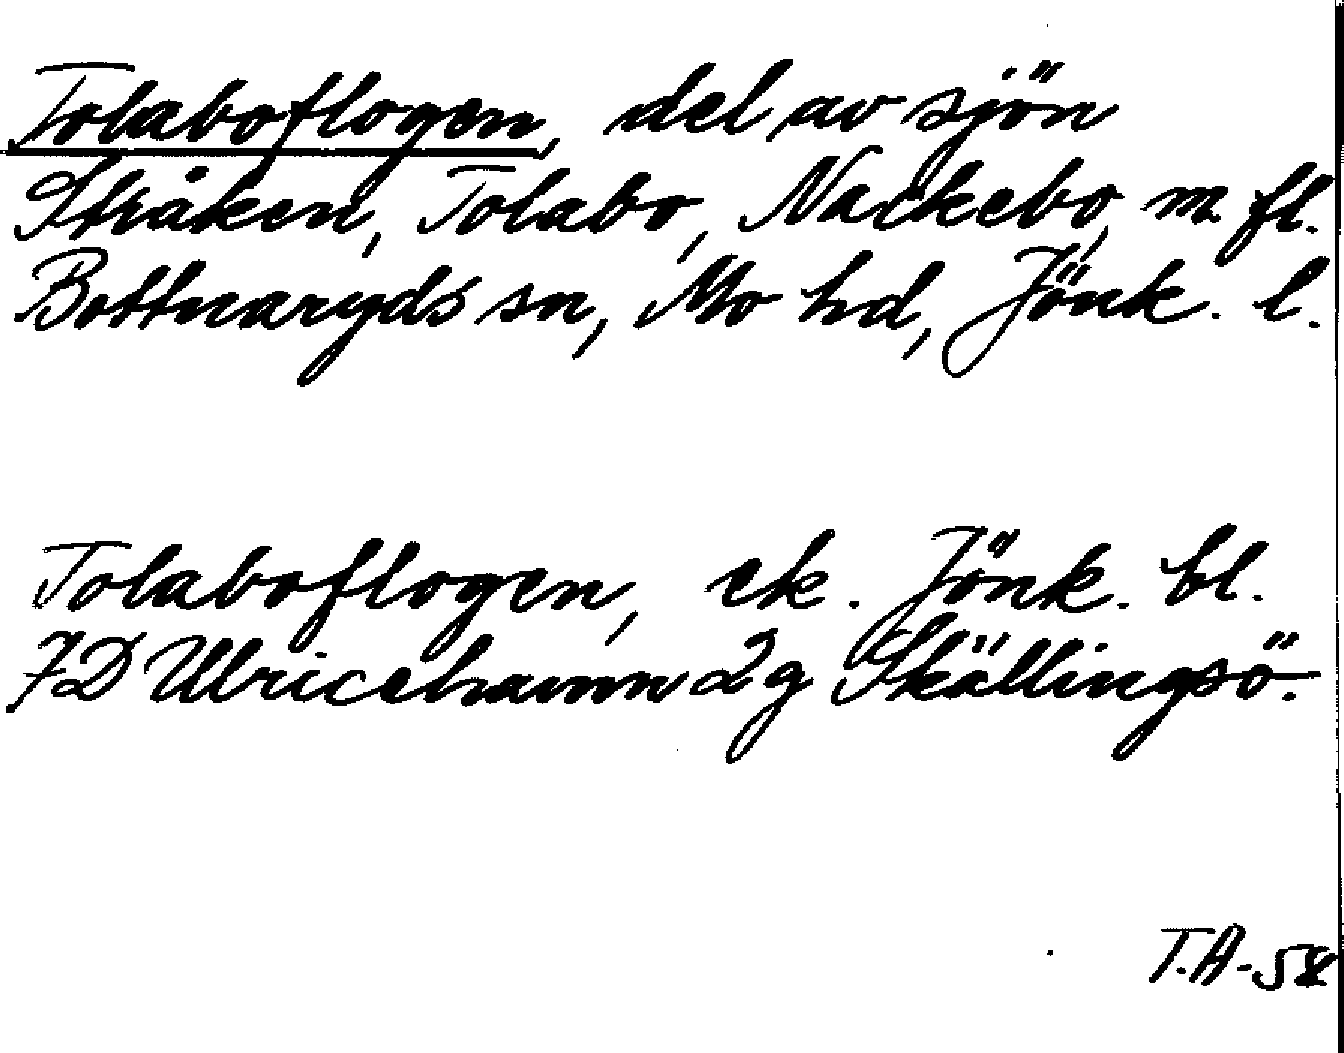 Tolaboflogen, del av sjön
Stråken, Tolabo, Nackebo, m. fl.
Bottnaryds sn, Mo hd, Jönk. l.
Tolaboflogen, ek. Jönk. bl.
7D Ulricehamn 2g Skällingsö.
T.A-58